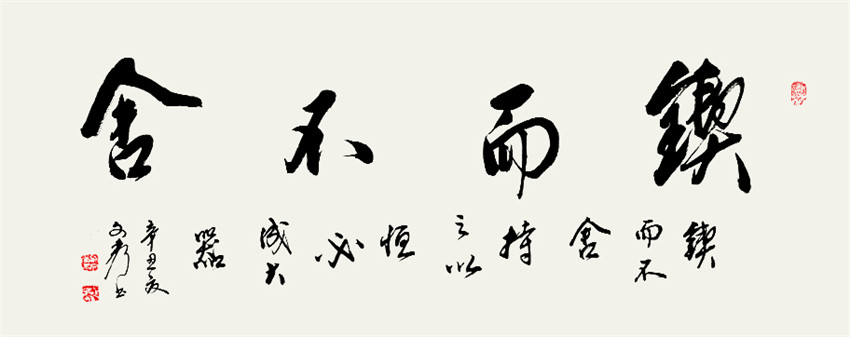 锲而不舍
锲而不舍持之以恒必成大器
辛丑夏
文孝书